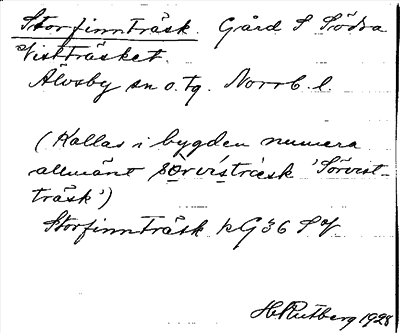 Storfinnträsk. Gård S Södra
Vistträsket.
Älvsby sn o. tg. Norrb. l.
(Kallas i bygden numera
allmänt sørvistrask 'Sörvist-
träsk')
Storfinnträsk kG36 Sof
H Rutberg 1928